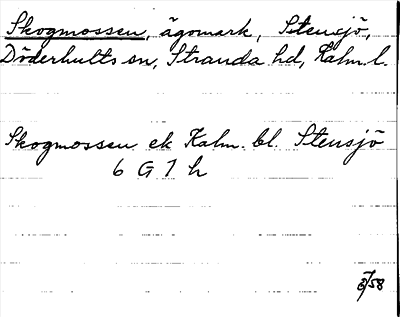 Skogmossen, ägomark, Stensjö,
Döderhults sn, Stranda hd, Kalm. l.
Skogmossen ek Kalm. bl. Stensjö
6 G 7 h